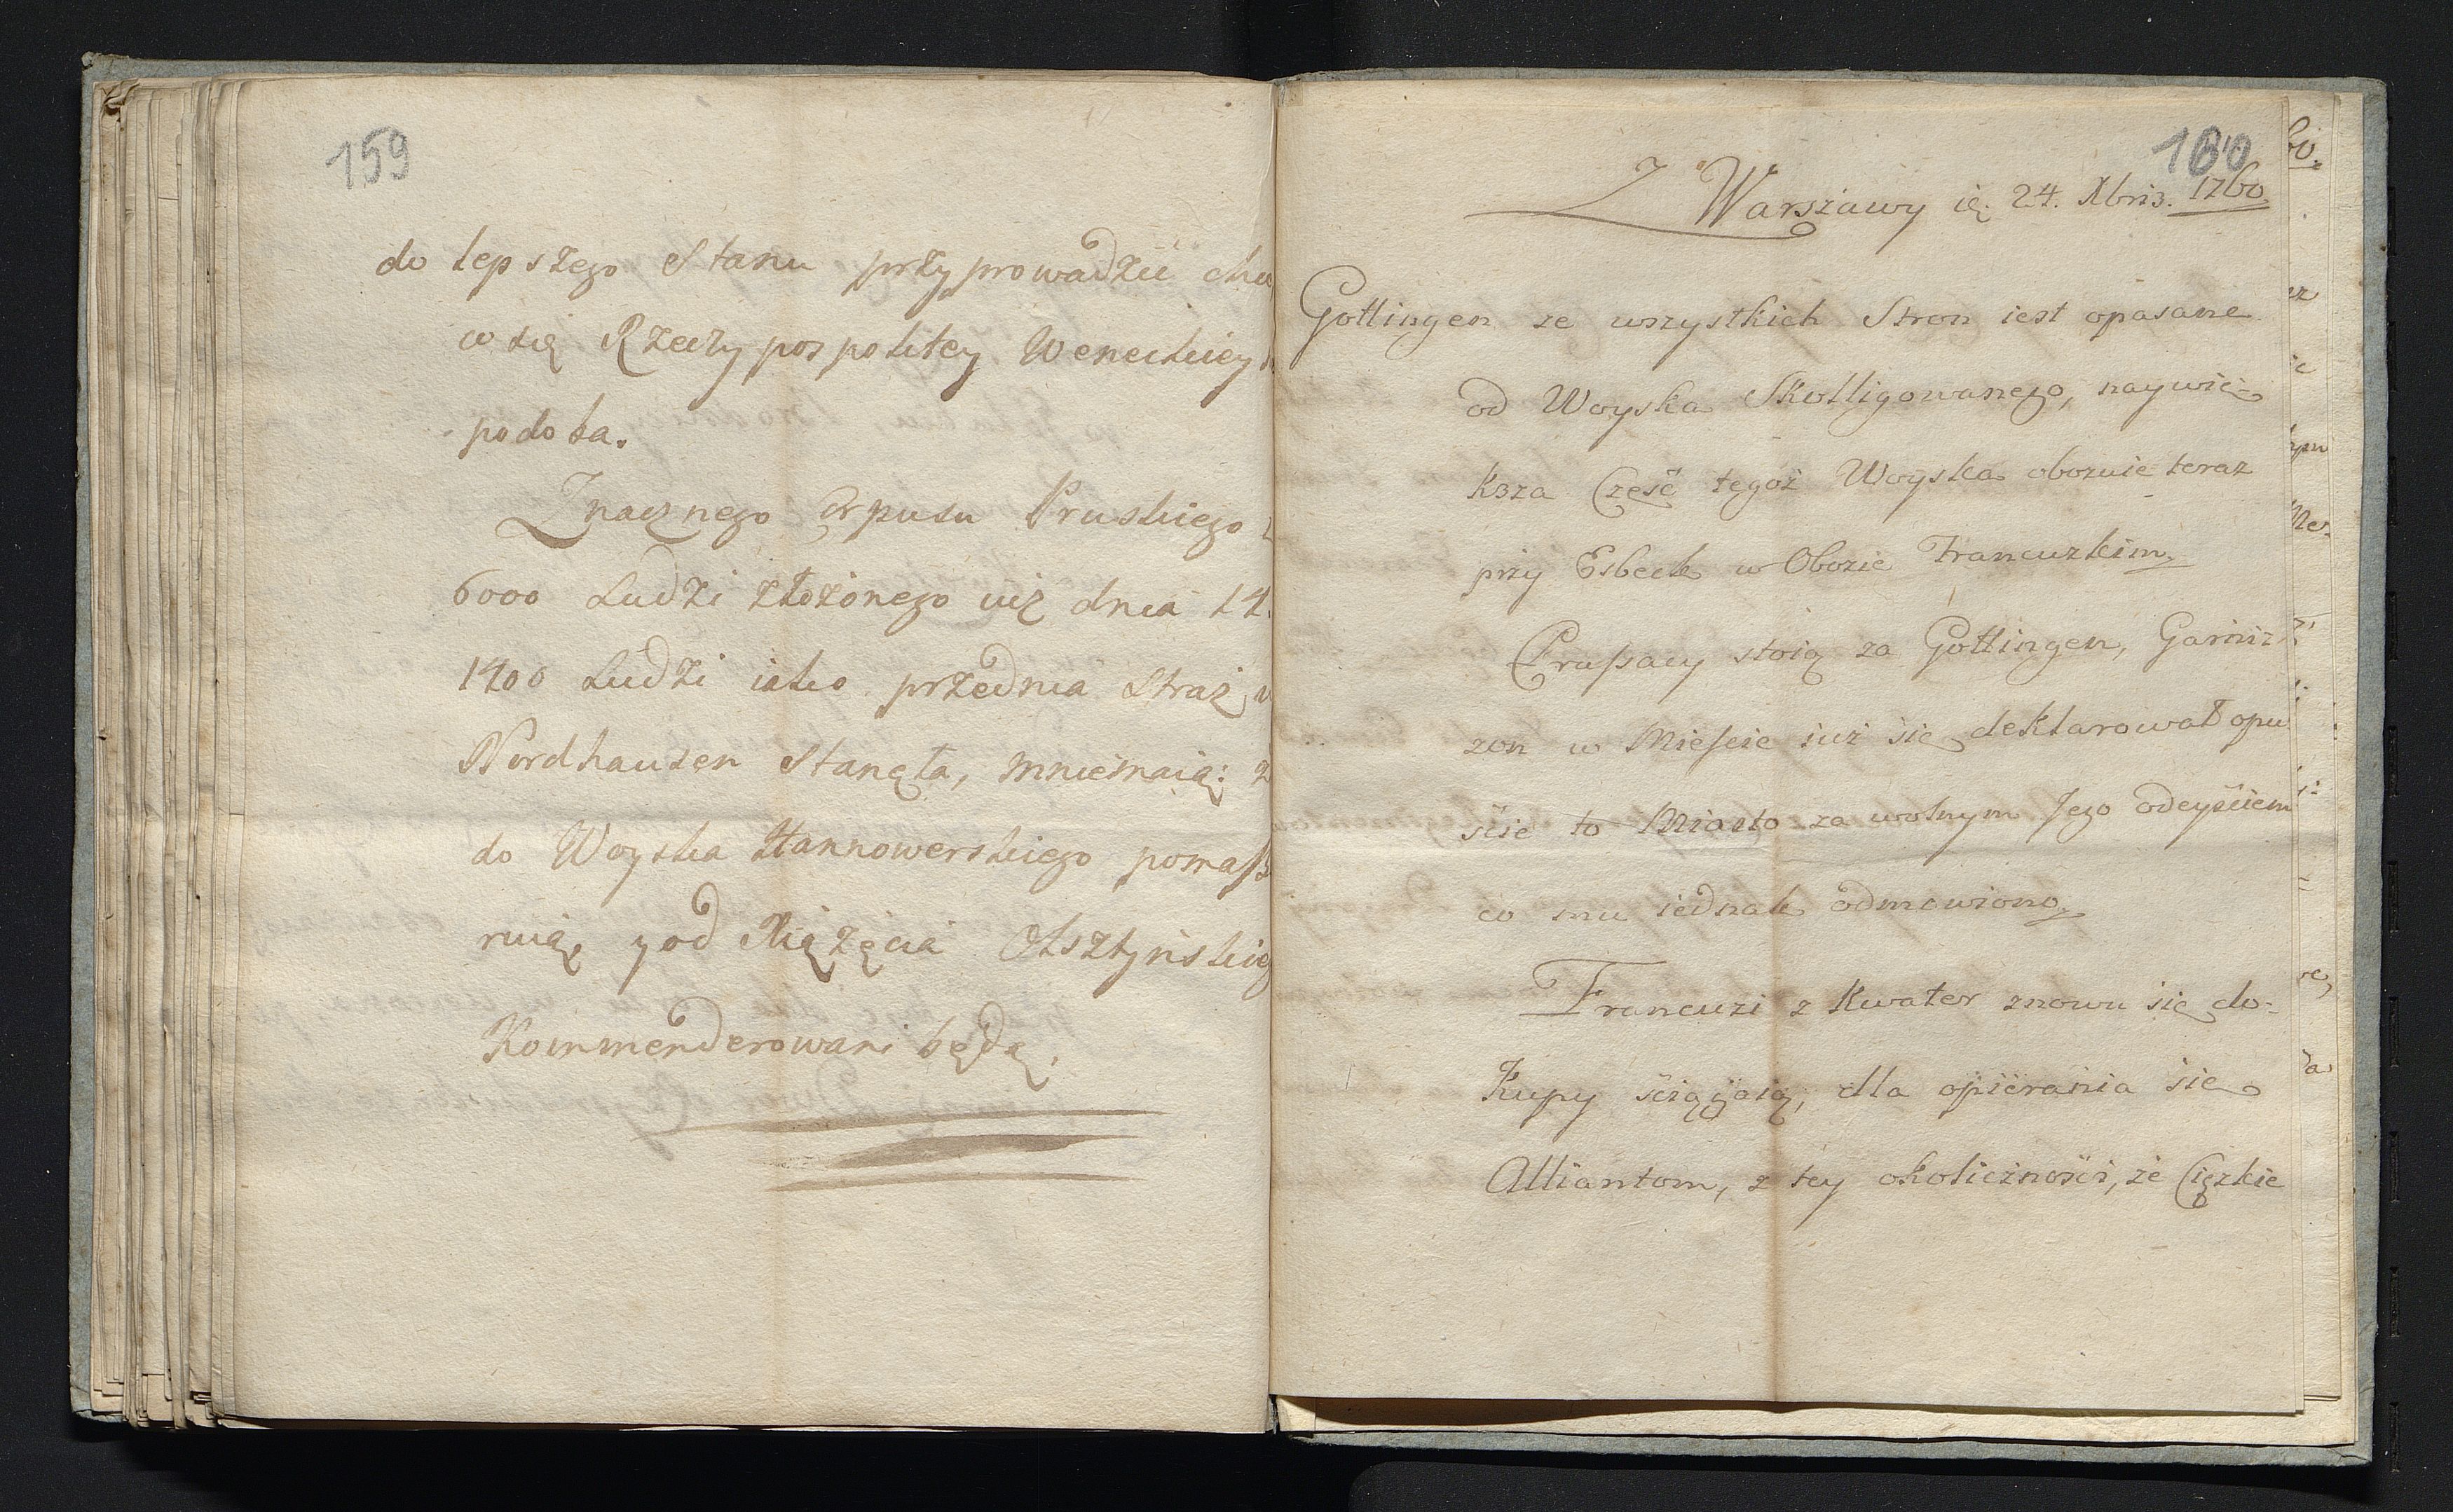 159
do lepszego Stanu przyprowadzić chce
co się Rzeczypospolitey Weneckiey
podoba.
Znacznego Corpusu Pruskiego
6000 Ludzi złożonego iuż dnia 14.
1400 Ludzi iako przednia Straż w
Nordhausen Stanęła, mniemaią: z
do Woyska Hannowerskiego pomasze
ruią y od Xiążęcia Olsztyńskieg
Kommenderowani będą.
160
Z Warszawy ię. 24. Xbris. 1760.
Gottingen ze wszystkich Stron iest opasane
od Woyska Skolligowanego, naywię-
ksza Część tegoż Woyska obozuie teraz
przy Esbeck w Obozie Francuzkim.
Prussacy stoią za Gottingen, Garniz
zon w Mieście iuż się deklarował opu
ście to Miasto za wolnym Jego odeyściem
co mu iednak odmowiono.
Francuzi z Kwater znowu się do-
Kupy ściągaią, dla opierania się
Alliantom, z tey okoliczności, że Ciężkie